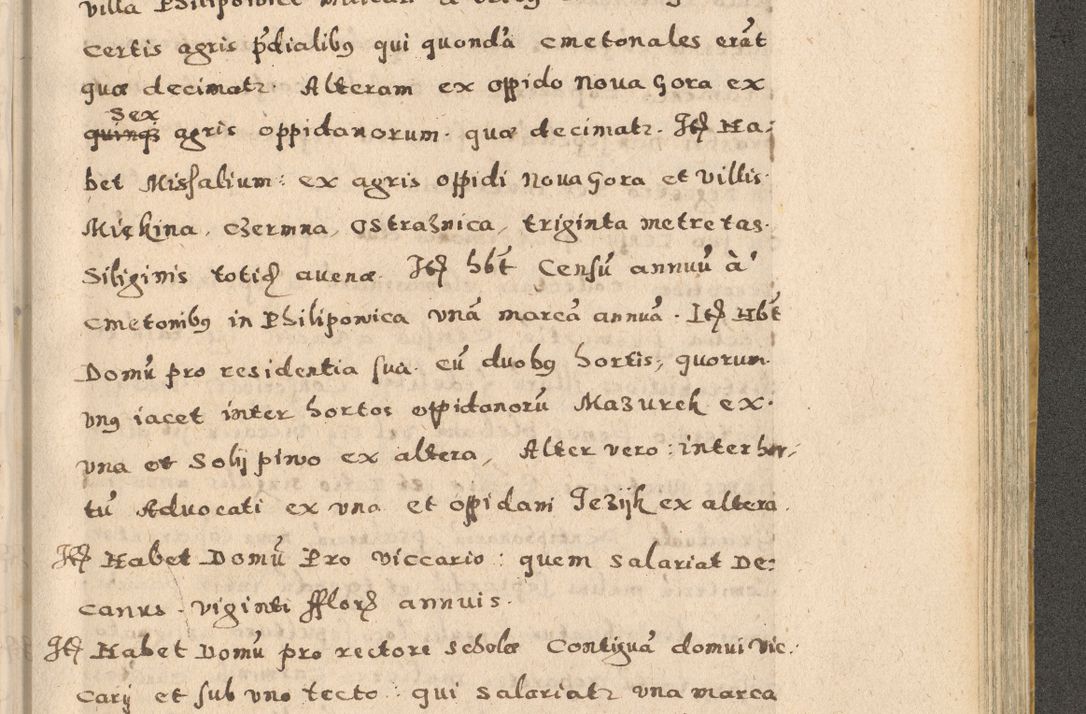 villa Philipowice
certis agris p̃dialibus qui quondã cmetonales erãt
quæ decimatr. Alteram ex oppido Nova Gora ex
sex
quinq3 agris oppidanorum. quæ decimatr. Itẽ Ha:
bet Missalium: ex agris oppidi Nova Gora et villis.
Miękina, Czermna, Ostraznica, triginta metretas.
Siliginis totiđ avenæ. Itẽ hb̃t Censũ annuũ à
cmetonibus in Philipowica unã marcã annuã. Itẽ Hb̃t
Domũ pro residentia sua. cũ duobus hortis, quorum.
unus iacet inter hortos oppidanorũ Mazurek ex.
una et Solij piwo ex altera, Alter vero: inter hor,
tũ Advocati ex una et oppidani Jezijk ex altera.
Itẽ Habet Domũ Pro Viccario: quem salariat De:
canus. viginti fflor3 annuis.
Itẽ Habet Domũ pro rectore scholæ Contiguã domui Vic:
carij et sub uno tecto: qui salariatr una marca